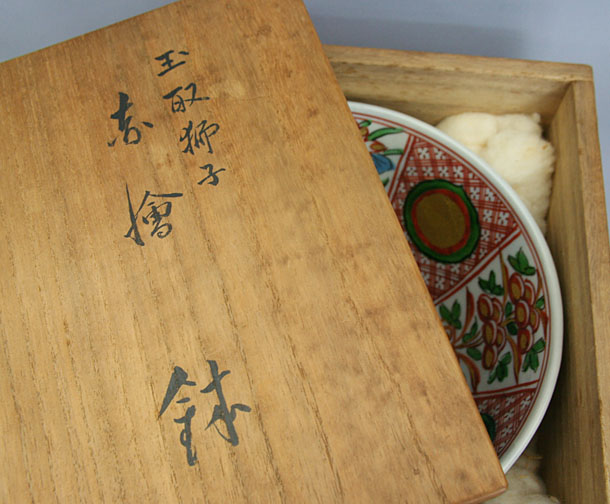 玉取獅子
赤繪
鉢